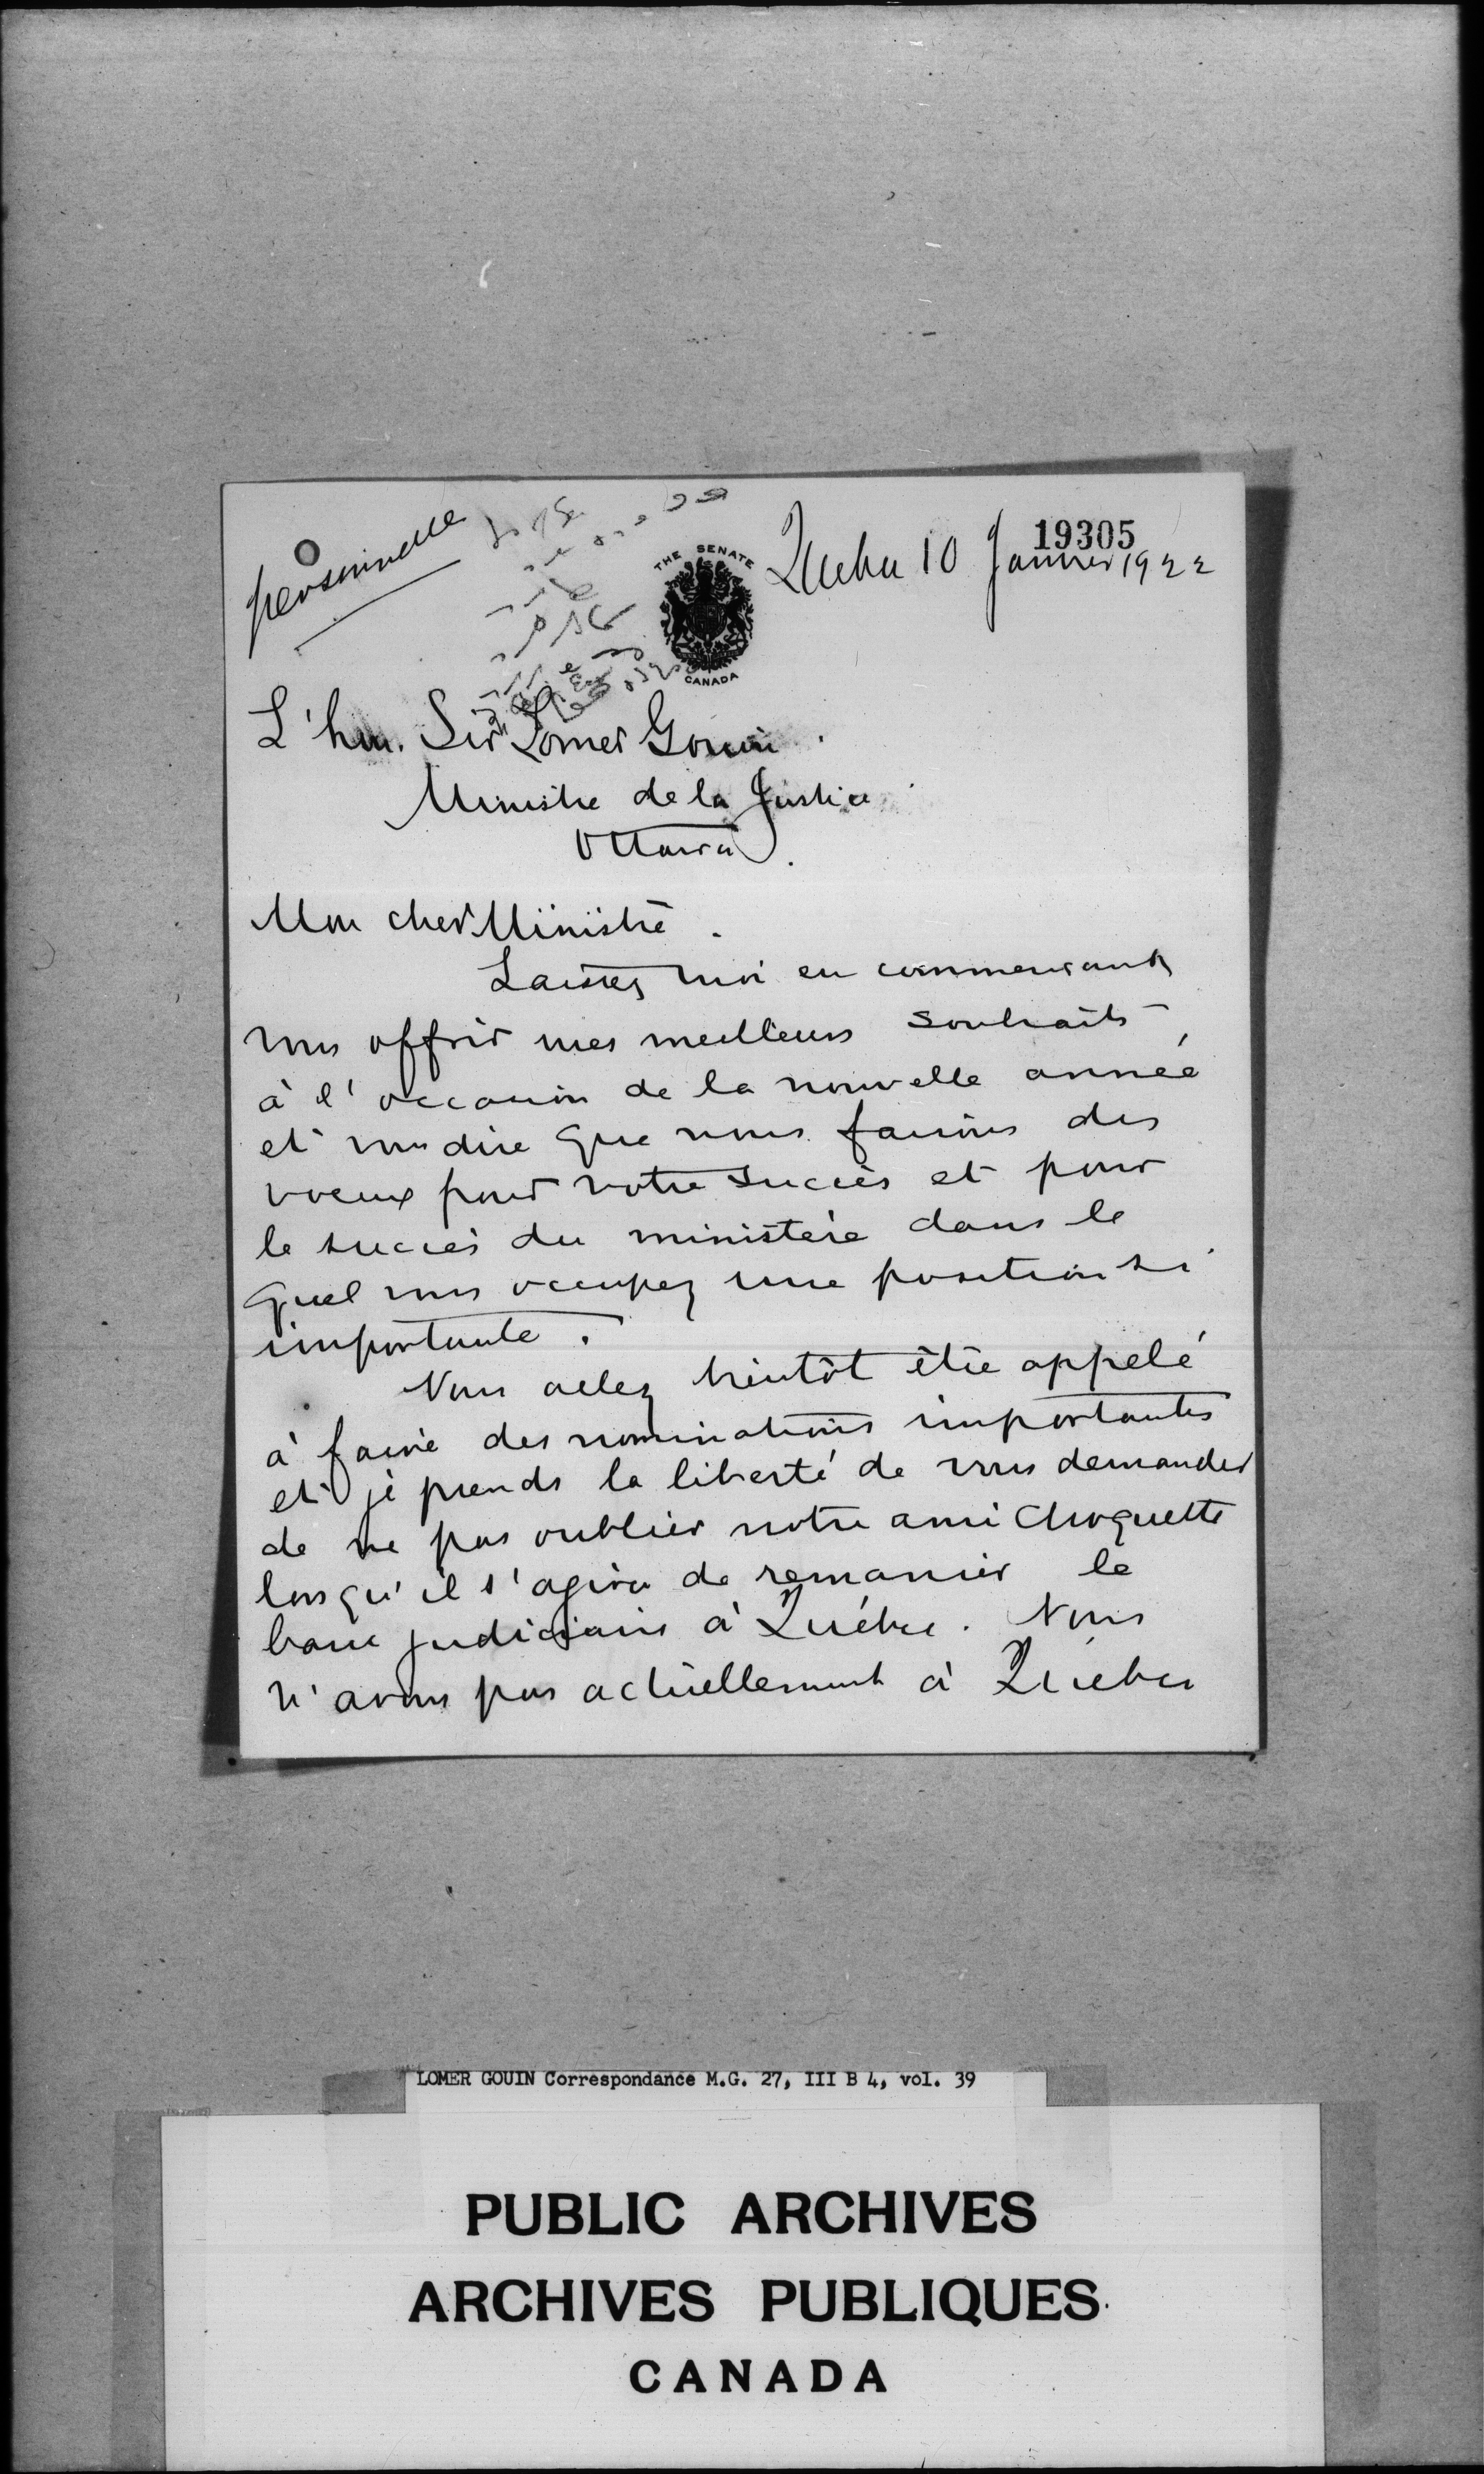 19305
personnelle
THE SENATE
CANADA
Québec 10 Janvier 1922
L'hon. Sir Lomer Gouin
Ministre de la Justice
Ottawa.
Mon cher Ministre.
Laissez moi en commencant
vous offrir mes meilleurs souhaits
à l'occasion de la nouvelle année
et vous dire que nous faisons des
voeux pour votre succès et pour
le succès du ministère dans le
quel vous occupez une position si
importante.
Vous allez bientôt être appelé
à faire des nominations importantes
et je prends la liberté de vous demander
de ne pas oublier notre ami Choquette
lorsqu'il s'agira de remanier le
banc judiciaire à Québec. Nous
n'avons pas actuellement à Québec
LOMER GOUIN Correspondance M.G. 27, III B 4, vol. 39
PUBLIC ARCHIVES
ARCHIVES PUBLIQUES
CANADA